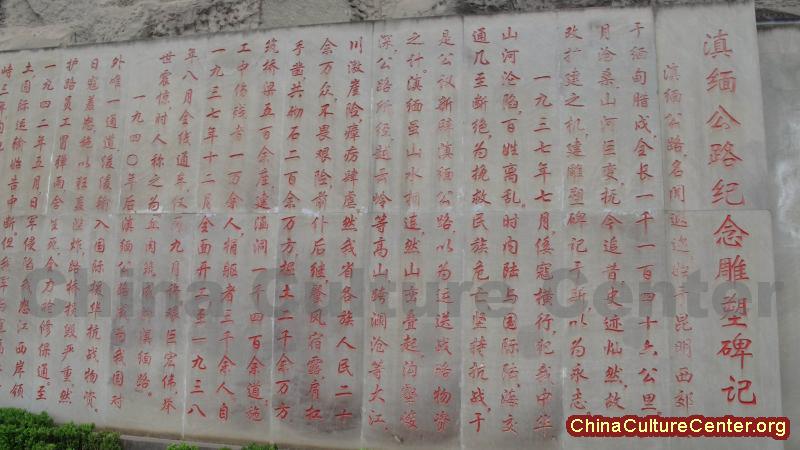 滇缅公路纪念雕塑碑记
滇缅公路，名闻遐迩，始于昆明西郊，
于缅甸腊戍，全长一千一百四十六公里。
月沧桑，山河巨变，抚今追昔，史迹灿然，故
改扩建之机，建雕塑碑记于斯，以为永志。
一九三七年七月，倭寇横行，犯我中华，
山河沦陷，百姓离乱。时内陆与国际陆海交
通几至断绝，为挽救民族危亡，坚持抗战，于
是公议新辟滇缅公路，以为运送战略物资
之什。滇缅虽山水相连，然山峦叠起，沟壑纵
深，公路所经，越云岭等高山，跨澜沧等大江，
川激崖险，瘴疠肆虐。然我省各族人民二十
余万众，不畏艰险，前仆后继，餐风宿露，肩扛
手凿，共砌石二百余万方，挖土二千余万方
筑桥梁五百余座，建涵洞一千四百余道，施
工中伤残者一万余人，捐躯者三千余人。自
一九三七年十二月全面开工至一九三八
年八月全线通车，仅九月馀，艰巨宏伟，举
世震惊，时人称之为血肉筑成的滇缅路。
一九四〇年后，滇缅公路成为我国对
外唯一通道，陆续输入国际援华抗战物资，
日寇羞怒，施以狂轰滥炸，路桥损毁严重，然
护路员工冒弹雨，舍生死，全力抢修保通。至
一九四二年五月，日军侵陷我怒江西岸领
土，国际运输始告中断。
China Culture Center
ChinaCultureCenter.org